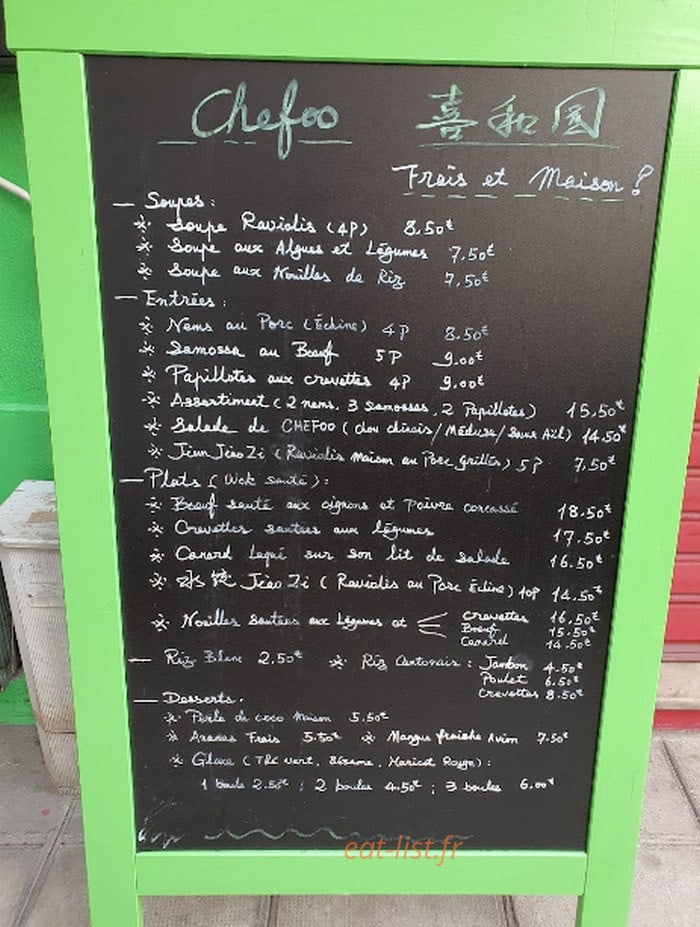 Chefoo 喜和园
Frais et Maison !
— Soupes :
* Soupe Raviolis (4P) 8.50€
* Soupe aux Algues et Légumes 7.50€
* Soupe aux Nouilles de Riz 7.50€
— Entrées :
* Nems au Porc (Échine) 4P 8.50€
* Samossa au Boeuf 5P 9.00€
* Papillotes aux crevettes 4P 9.00€
* Assortiment (2 nems, 3 Samossas, 2 Papillotes) 15.50€
* Salade de CHEFOO (chou chinois/Méduse/Sans Ail) 14.50€
* Jian Jiao Zi (Raviolis Maison au Porc grillés) 5P 7.50€
— Plats (Wok Sauté) :
* Boeuf sauté aux oignons et Poivre concassé 18.50€
* Crevettes sautées aux légumes 17.50€
* Canard Laqué sur son lit de salade 16.50€
* 水饺 Jiao Zi (Raviolis au Porc Échine) 10P 14.50€
* Nouilles Sautées aux Légumes et Crevettes 16.50€
Boeuf 15.50€
Canard 14.50€
— Riz Blanc 2.50€ * Riz Cantonais : Jambon 4.50€
Poulet 6.50€
Crevettes 8.50€
— Desserts.
* Perle de coco Maison 5.50€
* Ananas Frais 5.50€ * Mangue fraîche Avion 7.50€
* Glace (Thé vert, Sésame, Haricot Rouge) :
1 boule 2.50€ ; 2 boules 4.50€ ; 3 boules 6.00€
eat-list.fr